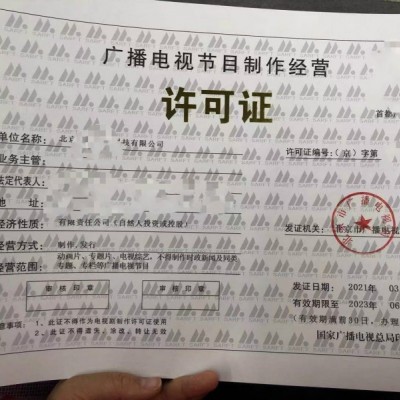 广播电视节目制作经营
许可证
单位名称: 北京 有限公司
许可证编号: (京) 字第
业务主管:
法定代表人:
地 址:
经济性质: 有限责任公司(自然人投资或控股)
发证机关: 北京市广播电视
经营方式: 制作,发行
经营范围: 动画片、专题片、电视综艺,不得制作时政新闻及同类
专题、专栏等广播电视节目
审核印章
审核印章
发证日期: 2021年 03
有效期限至 2023年 06
(有效期满前30日,办理
注意事项: 1、此证不得作为电视剧制作许可证使用
2、此证不得遗失、涂改、转让无效
国家广播电视总局印